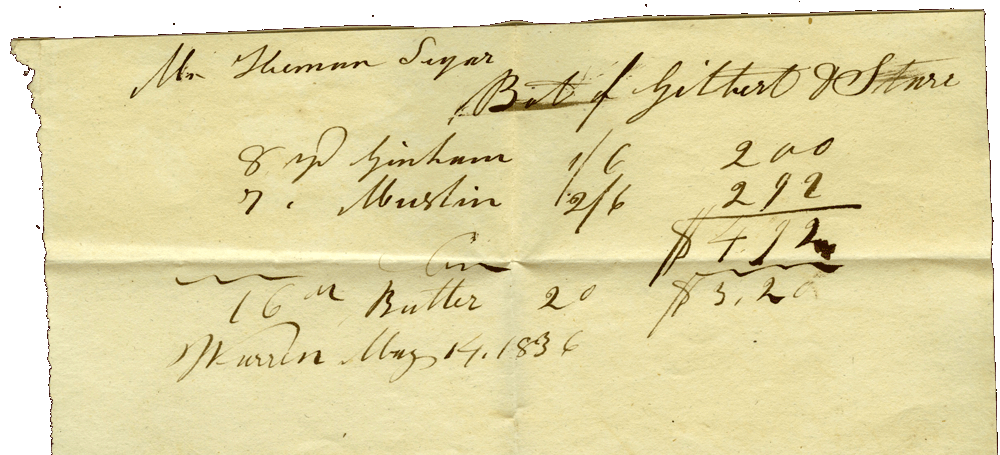 Mr Heman Segar
Bot of Gilbert & Starr
8 yd Ginham 1/6 2 00
7 " Muslin 2/6 2 92
$ 4.92
Cr
16 lb Butter 20 $ 3.20
Warren May 14. 1836